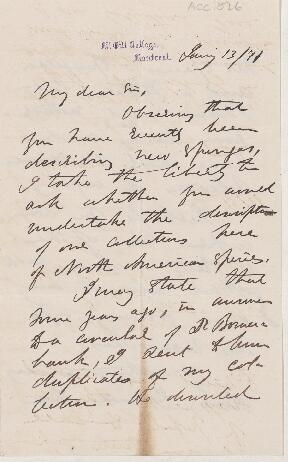 ACC. 826
McGill College,
Montreal
Jany 13/71
My dear Sir,
Observing that
you have recently been
describing new Sponges,
I take the liberty to
ask whether you would
undertake the description
of our collections here
of North American Species.
I may state that
some years ago, in answer
to a circular of Dr Bower-
bank, I sent to him
duplicates of my col-
lection. He